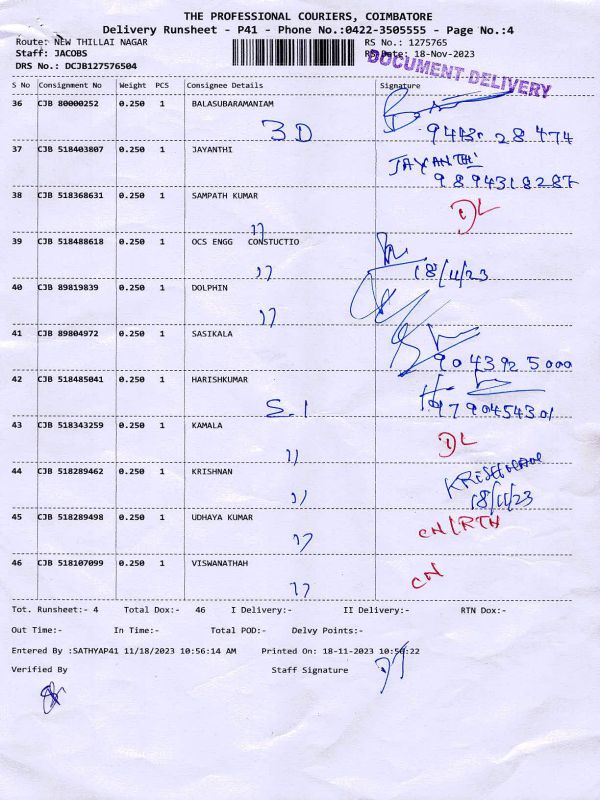 THE PROFESSIONAL COURIERS, COIMBATORE
Delivery Runsheet - P41 - Phone No.:0422-3505555 - Page No.:4
Route: NEW THILLAI NAGAR RS No.: 1275765
Staff: JACOBS RS Date: 18-Nov-2023
DRS No.: DCJB127576504
DOCUMENT DELIVERY
S No Consignment No Weight PCS Consignee Details Signature
36 CJB 80000252 0.250 1 BALASUBARAMANIAM
3D
37 CJB 518403807 0.250 1 JAYANTHI JAYANTHI
9894318287
38 CJB 518368631 0.250 1 SAMPATH KUMAR DL
39 CJB 518488618 0.250 1 OCS ENGG CONSTUCTIO
18/11/23
40 CJB 89819839 0.250 1 DOLPHIN
41 CJB 89804972 0.250 1 SASIKALA
9043925000
42 CJB 518485041 0.250 1 HARISHKUMAR
S.1 9790454301
43 CJB 518343259 0.250 1 KAMALA DL
44 CJB 518289462 0.250 1 KRISHNAN
18/11/23
45 CJB 518289498 0.250 1 UDHAYA KUMAR CN/RTN
46 CJB 518107099 0.250 1 VISWANATHAH CN
Tot. Runsheet:- 4 Total Dox:- 46 I Delivery:- II Delivery:- RTN Dox:-
Out Time:- In Time:- Total POD:- Delvy Points:-
Entered By :SATHYAP41 11/18/2023 10:56:14 AM Printed On: 18-11-2023 10:56:22
Verified By Staff Signature